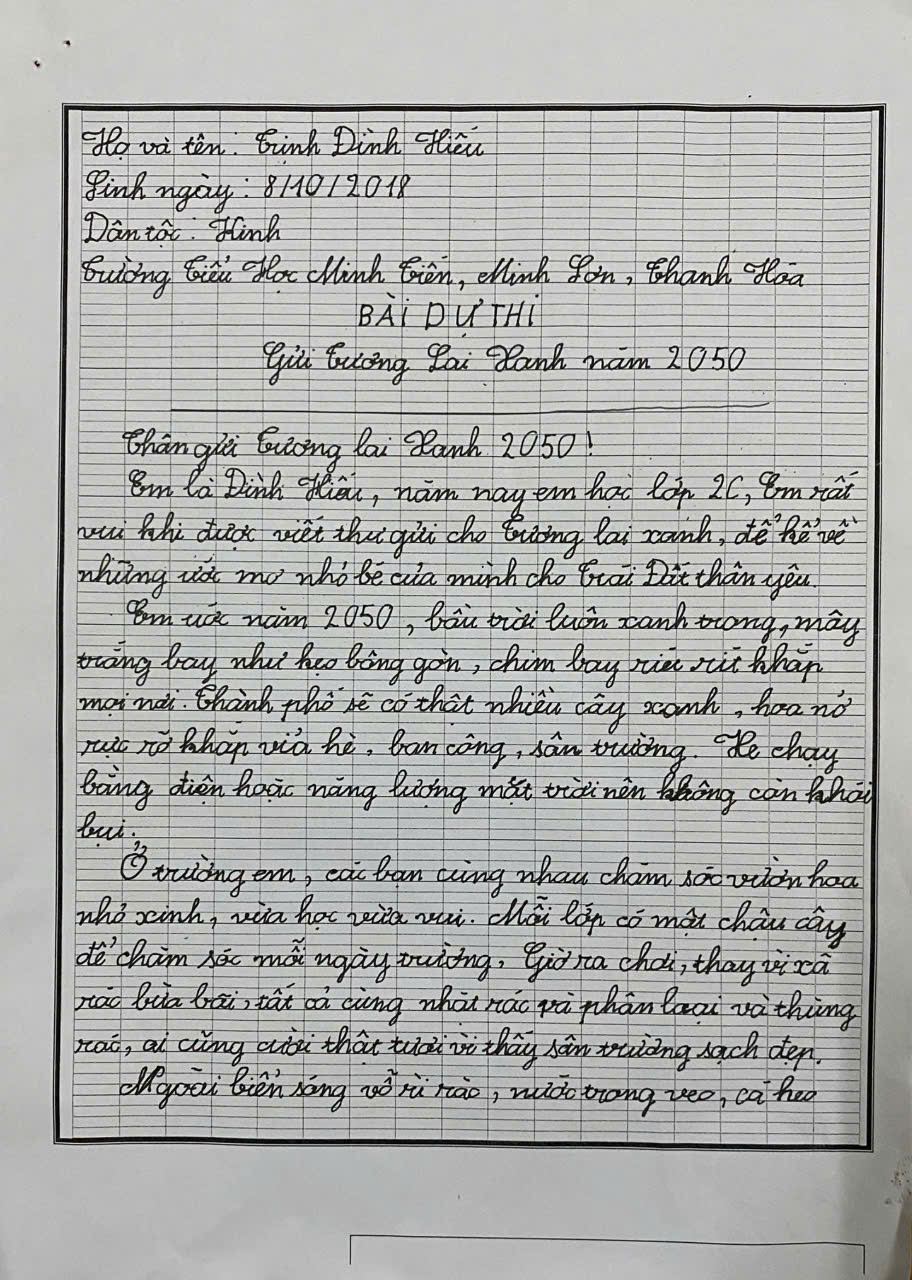 Họ và tên: Trịnh Đình Hiếu
Sinh ngày: 8/10/2018
Dân tộc: Kinh
Trường Tiểu Học Minh Tiến, Minh Sơn, Thanh Hóa
BÀI DỰ THI
Gửi Tương Lai Xanh năm 2050
Thân gửi Tương lai Xanh 2050!
Em là Đình Hiếu, năm nay em học lớp 2C, Em rất
vui khi được viết thư gửi cho Tương lai xanh, để kể về
những ước mơ nhỏ bé của mình cho Trái Đất thân yêu.
Em ước năm 2050, bầu trời luôn xanh trong, mây
trắng bay như kẹo bông gòn, chim bay ríu rít khắp
mọi nơi. Thành phố sẽ có thật nhiều cây xanh, hoa nở
rực rỡ khắp vỉa hè, ban công, sân trường. Xe chạy
bằng điện hoặc năng lượng mặt trời nên không còn khói
bụi.
Ở trường em, các bạn cùng nhau chăm sóc vườn hoa
nhỏ xinh, vừa học vừa vui. Mỗi lớp có một chậu cây
để chăm sóc mỗi ngày trường, Giờ ra chơi, thay vì xả
rác bừa bãi, tất cả cùng nhặt rác và phân loại và thùng
rác, ai cũng cười thật tươi vì thấy sân trường sạch đẹp.
Ngoài biển sóng vỗ rì rào, nước trong veo, cá heo